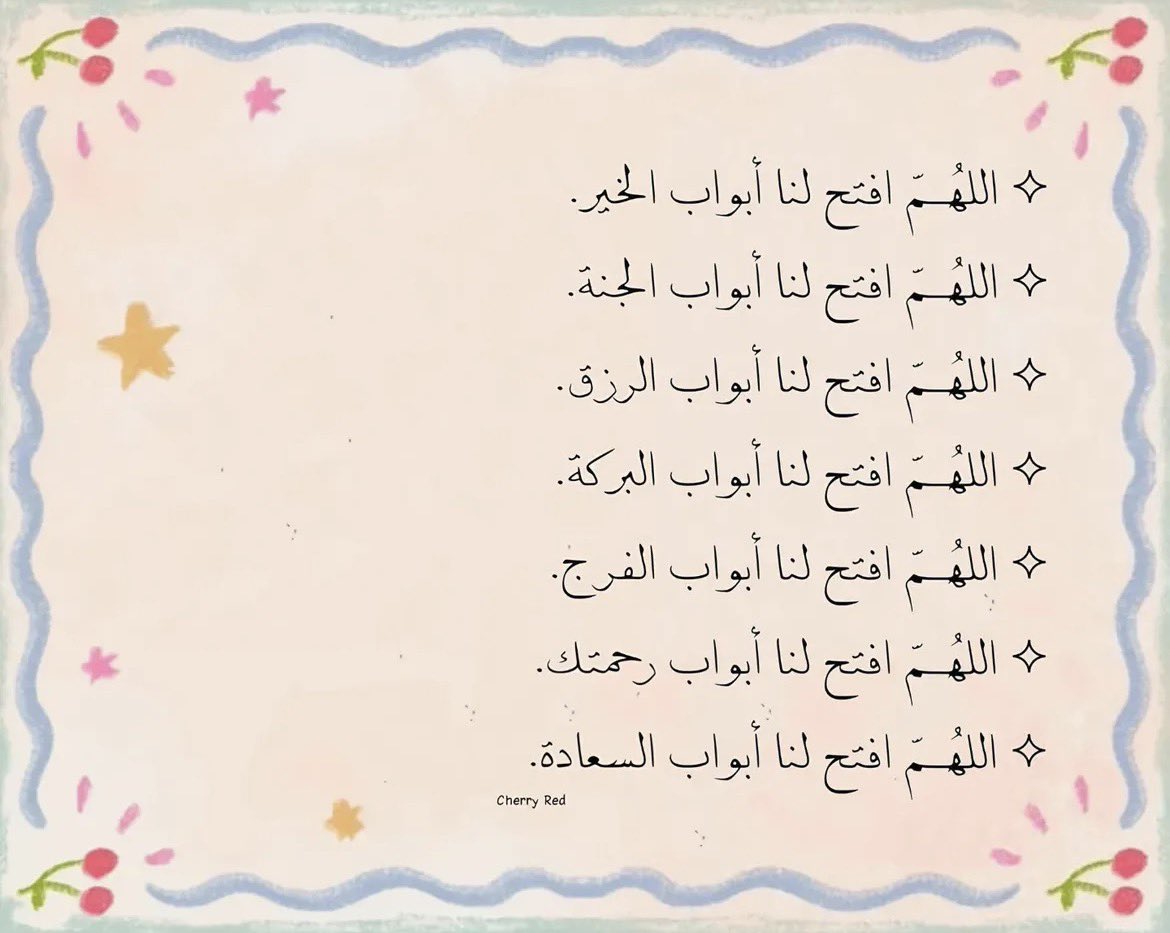 ✧ اللهُـمّ افتح لنا أبواب الخير.
✧ اللهُـمّ افتح لنا أبواب الجنة.
✧ اللهُـمّ افتح لنا أبواب الرزق.
✧ اللهُـمّ افتح لنا أبواب البركة.
✧ اللهُـمّ افتح لنا أبواب الفرج.
✧ اللهُـمّ افتح لنا أبواب رحمتك.
✧ اللهُـمّ افتح لنا أبواب السعادة.
Cherry Red